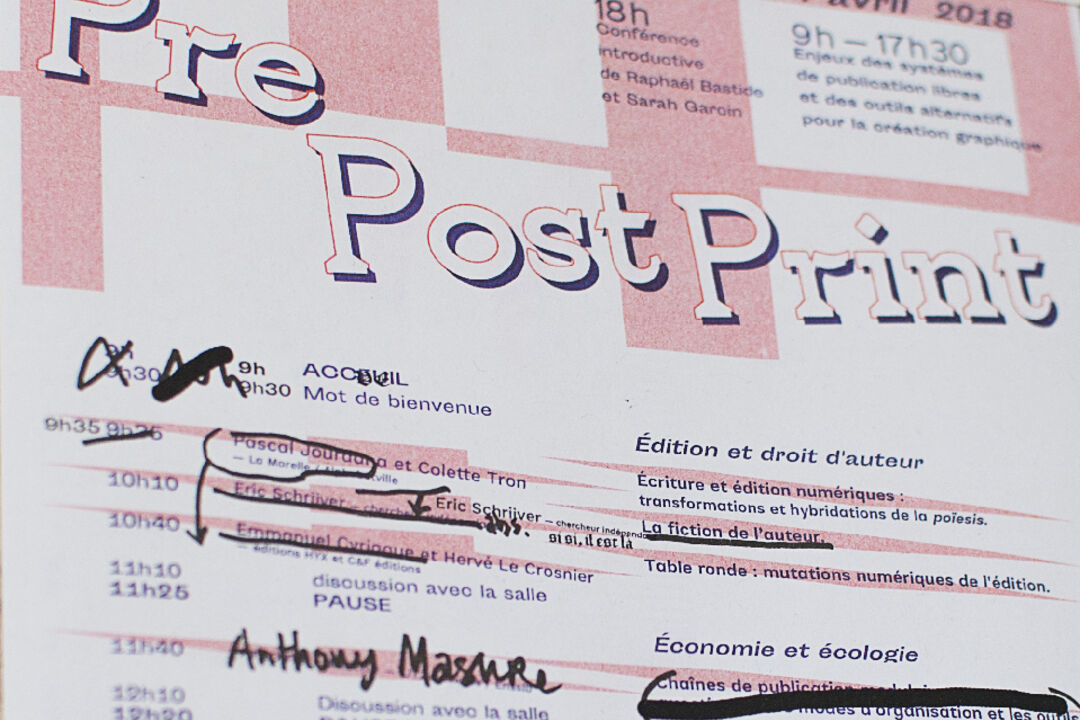 Pre
Post Print
18h
Conférence
introductive
de Raphaël Bastide
et Sarah Garcin
avril 2018
9h – 17h30
Enjeux des systèmes
de publication libres
et des outils alternatifs
pour la création graphique
9h
9h30
9h ACCEUIL
9h30 Mot de bienvenue
9h35 9h35
Pascal Jourdana et Colette Tron
— La Marelle / Alphabetville
Édition et droit d'auteur
Écriture et édition numériques :
transformations et hybridations de la poïesis.
10h10
Eric Schrijver — chercheur
Eric Schrijver — chercheur indépend
abs.
si si, il est là
La fiction de l'auteur.
10h40
Emmanuel Cyriaque et Hervé Le Crosnier
— éditions HYX et C&F éditions
Table ronde : mutations numériques de l'édition.
11h10 discussion avec la salle
11h25 PAUSE
Économie et écologie
11h40
Anthony Masure
Chaînes de publication
modes d'organisation et les
12h10 Discussion avec la salle
12h20